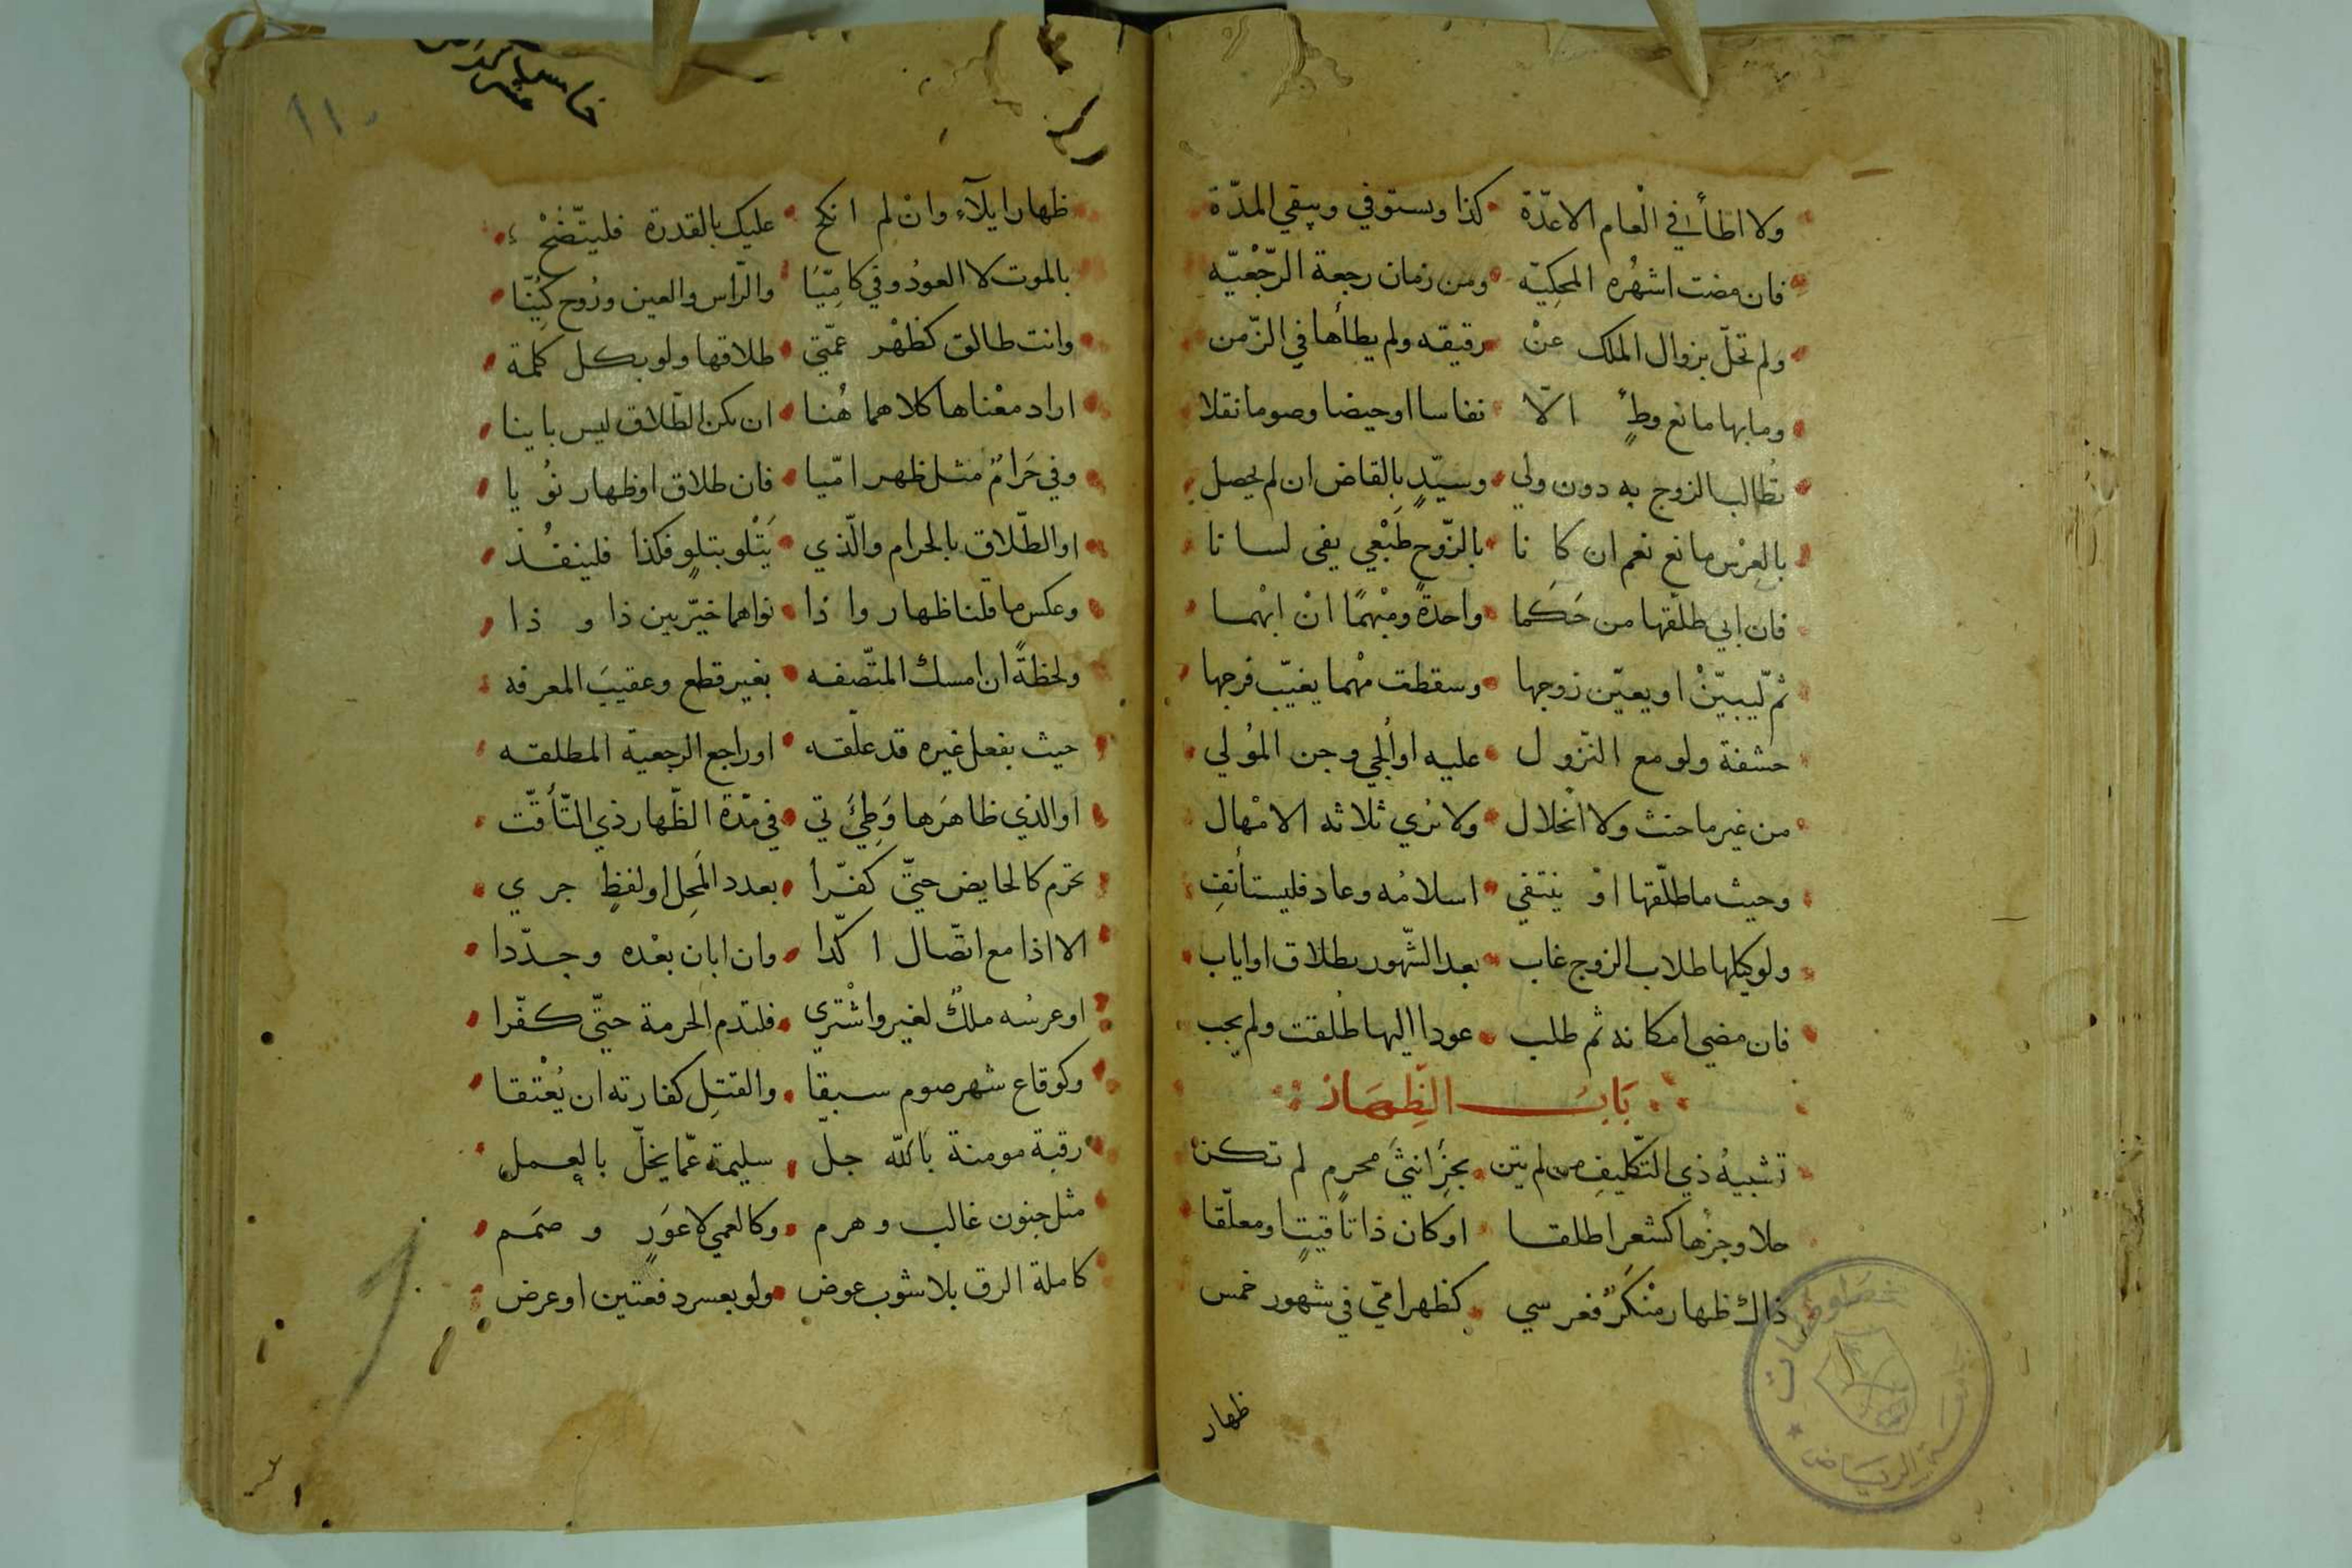 ولا اطأ في العام الا عدّة • كذا وستوفي ويبقي المدّة
فان مضت اشهره المحكيّه • ومن زمان رجعة الرّجْعيّه
ولم تحلّ بزوال الملك عنْ • رقيقه ولم يطأها في الزّمن
وما بها مانع وطءٍ الّا • نفاسا او حيضا وصوما نقلا
تطالب الزوج به دون ولي • وسيّدٍ بالقاض ان لم يحصل
بالعِرْس مانع نعم ان كانا • بالزّوج طبْعي يفي لسانا
فان ابي طلّقها من حَكَما • واحدةً ومبْهمًا انْ ابهما
ثمّ ليبيّنْ او يعيّن زوجها • وسقطت مهْما يغيّب فرجها
حشفة ولو مع النّزول • عليه او ألجي وجن المُولي
من غير ما حنث ولا انْحلال • ولا نري ثلاثه الامْهال
وحيث ما طلّقها اوْ ينتفي • اسلامُه وعاد فليستأنفِ
ولوكيلها طلاب الزوج غاب • بعد الشّهور بطلاق او اياب
فان مضي امكانه ثم طلب • عودا اليها طُلقت ولم يجب
بَابُ الظِّهَار
تشبيهُ ذي التّكليفِ من لم تبن • بجزْءِ انثَي محرمٍ لم تكن
حلا وجزءها كشعرٍ اطلقا • او كان ذا تأقيتٍ او معلّقا
ذاك ظهار منْكرٌ فعرسي • كظهر امّي في شهور خمس
ظهار
١١٠
ظهارا ايلآء وانْ لم انكح • عليك بالقدرة فليتّضحْ
بالموت لا العودُ وفي كامِّيَا • والرّاس والعين ورُوح كنّيَّا
وانت طالق كظهْر عمّتي • طلاقها ولو بكل كلمة
اراد معْناها كلاهما هُنا • ان يكن الطّلاق ليس باينا
وفي حَرامٌ مثل ظهر امّيا • فان طلاق او ظهار نُويا
او الطّلاق بالحرام والّذي • يَتْلو بتلوٍ فكذا فلينفُذ
وعكس ما قلنا ظهار واذا • نواهما خيّر بين ذا وذا
ولحظةً ان امسك المتّصفه • بغير قطع وعقيبَ المعرفه
حيث بفعل غيره قد علّقه • او راجع الرجعية المطلقه
او الذي ظاهَرَها وَطِئَ تي • في مدّة الظّهار ذي التّأقّت
تحرم كالحايض حتّي كفّرا • بعدد المَحِل او لفظٍ جري
الا اذا مع اتّصال اكّدا • وان ابان بعْده وجدّدا
او عرسُه ملكٌ لغير واشْتري • فلتدم الحرمة حتّي كفّرا
وكوقاع شهر صوم سبقا • والقتلِ كفارته ان يُعْتقا
رقبة مومنة باللّه جلّ • سليمة عمّا يخلّ بالعمل
مثل جنون غالب وهرم • وكالعمي لا عَوَرٍ وصَمَم
كاملة الرق بلا شوب عوض • ولو بعسر دفعتين او عرض
مخطوطات
جامعة الرياض